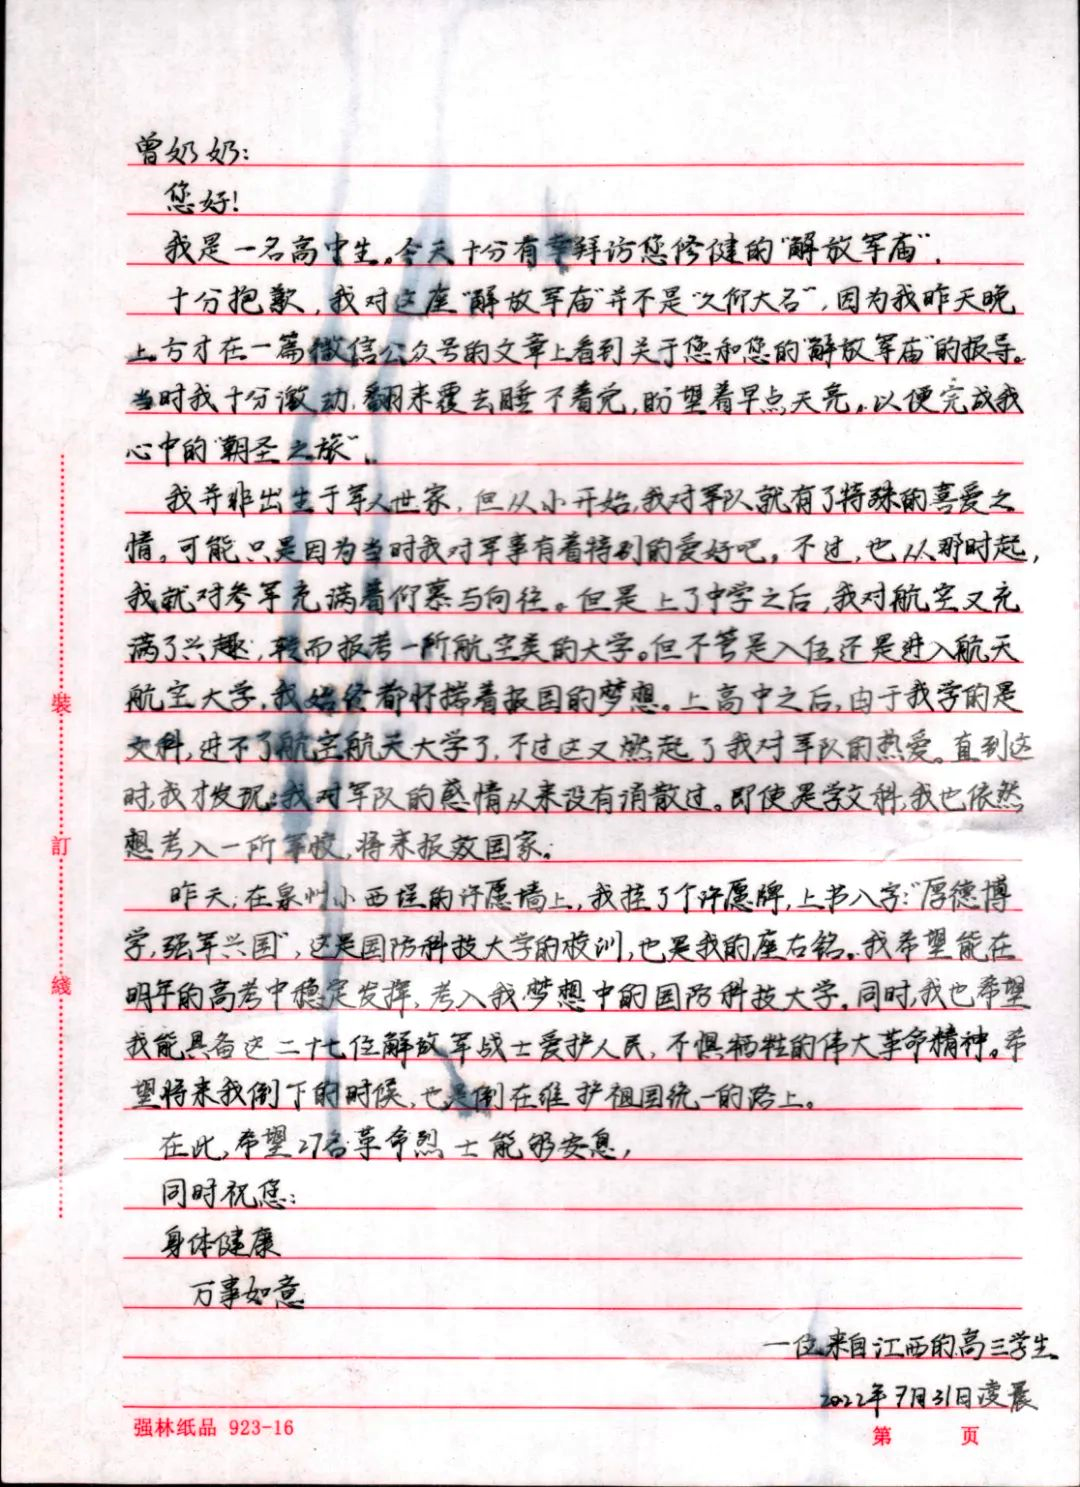 曾奶奶：
您好！
我是一名高中生。今天十分有幸拜访您修健的“解放军庙”.
十分抱歉，我对这座“解放军庙”并不是“久仰大名”，因为我昨天晚
上方才在一篇微信公众号的文章上看到关于您和您的“解放军庙”的报导。
当时我十分激动，翻来覆去睡不着觉，盼望着早点天亮，以便完成我
心中的“朝圣之旅”。
我并非出生于军人世家，但从小开始，我对军队就有了特殊的喜爱之
情。可能只是因为当时我对军事有着特别的爱好吧。不过，也从那时起，
我就对参军充满着仰慕与向往。但是上了中学之后，我对航空又充
满了兴趣，转而报考一所航空类的大学。但不管是入伍还是进入航天
航空大学，我始终都怀揣着报国的梦想。上高中之后，由于我学的是
文科，进不了航空航天大学了，不过这又燃起了我对军队的热爱。直到这
时，我才发现：我对军队的感情从来没有消散过。即使是学文科，我也依然
想考入一所军校，将来报效国家。
昨天，在泉州小西埕的许愿墙上，我挂了个许愿牌，上书八字：“厚德博
学，强军兴国”，这是国防科技大学的校训，也是我的座右铭。我希望能在
明年的高考中稳定发挥，考入我梦想中的国防科技大学。同时，我也希望
我能具备这二十七位解放军战士爱护人民，不惧牺牲的伟大革命精神。希
望将来我倒下的时候，也是倒在维护祖国统一的路上。
在此，希望27名革命烈士能够安息，
同时祝您：
身体健康
万事如意
一位来自江西的高三学生
2022年7月31日凌晨
裝
訂
綫
强林纸品 923-16
第 页